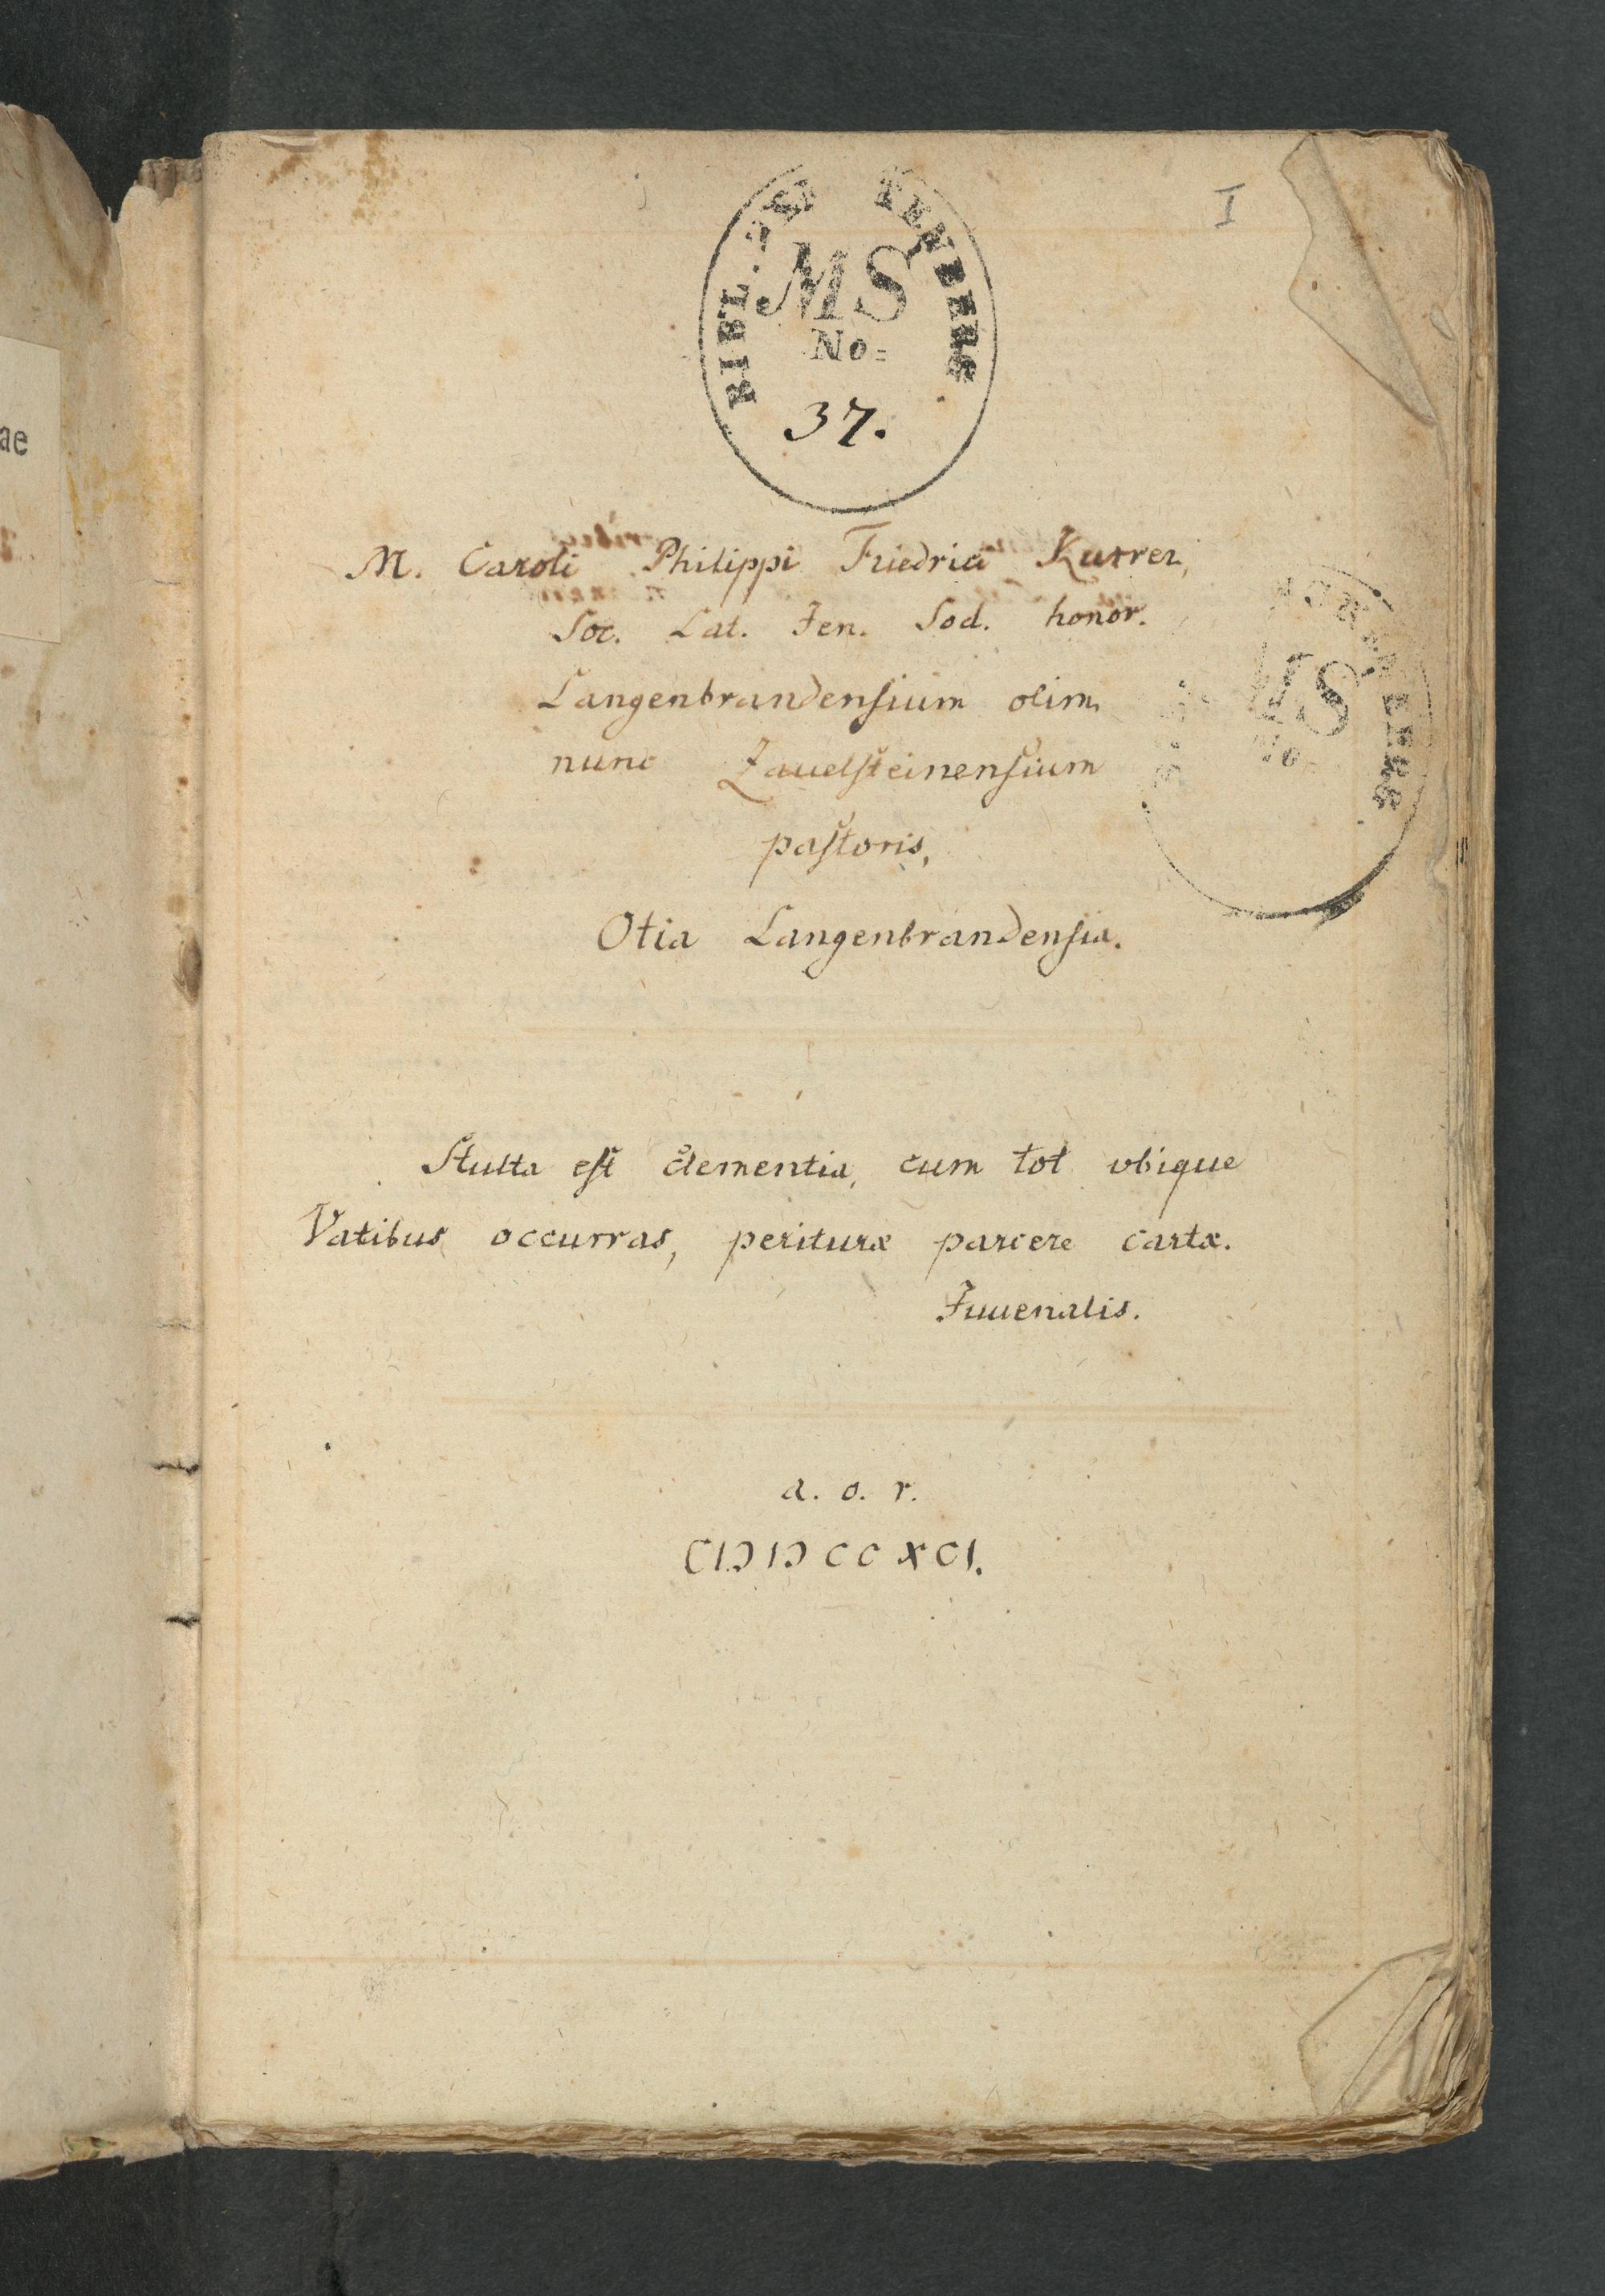 I
MS
No=
37.
M. Caroli Philippi Friedrici Kurrer,
Soc. Lat. Jen. Sod. honor.
Langenbrandensium olim,
nunc Zavelsteinensium
pastoris,
Otia Langenbrandensia.
Stulta est clementia, cum tot vbique
Vatibus occurras, perituræ parcere cartæ.
Iuuenalis.
a. o. r.
CIƆ IƆ CC XCI.
ae